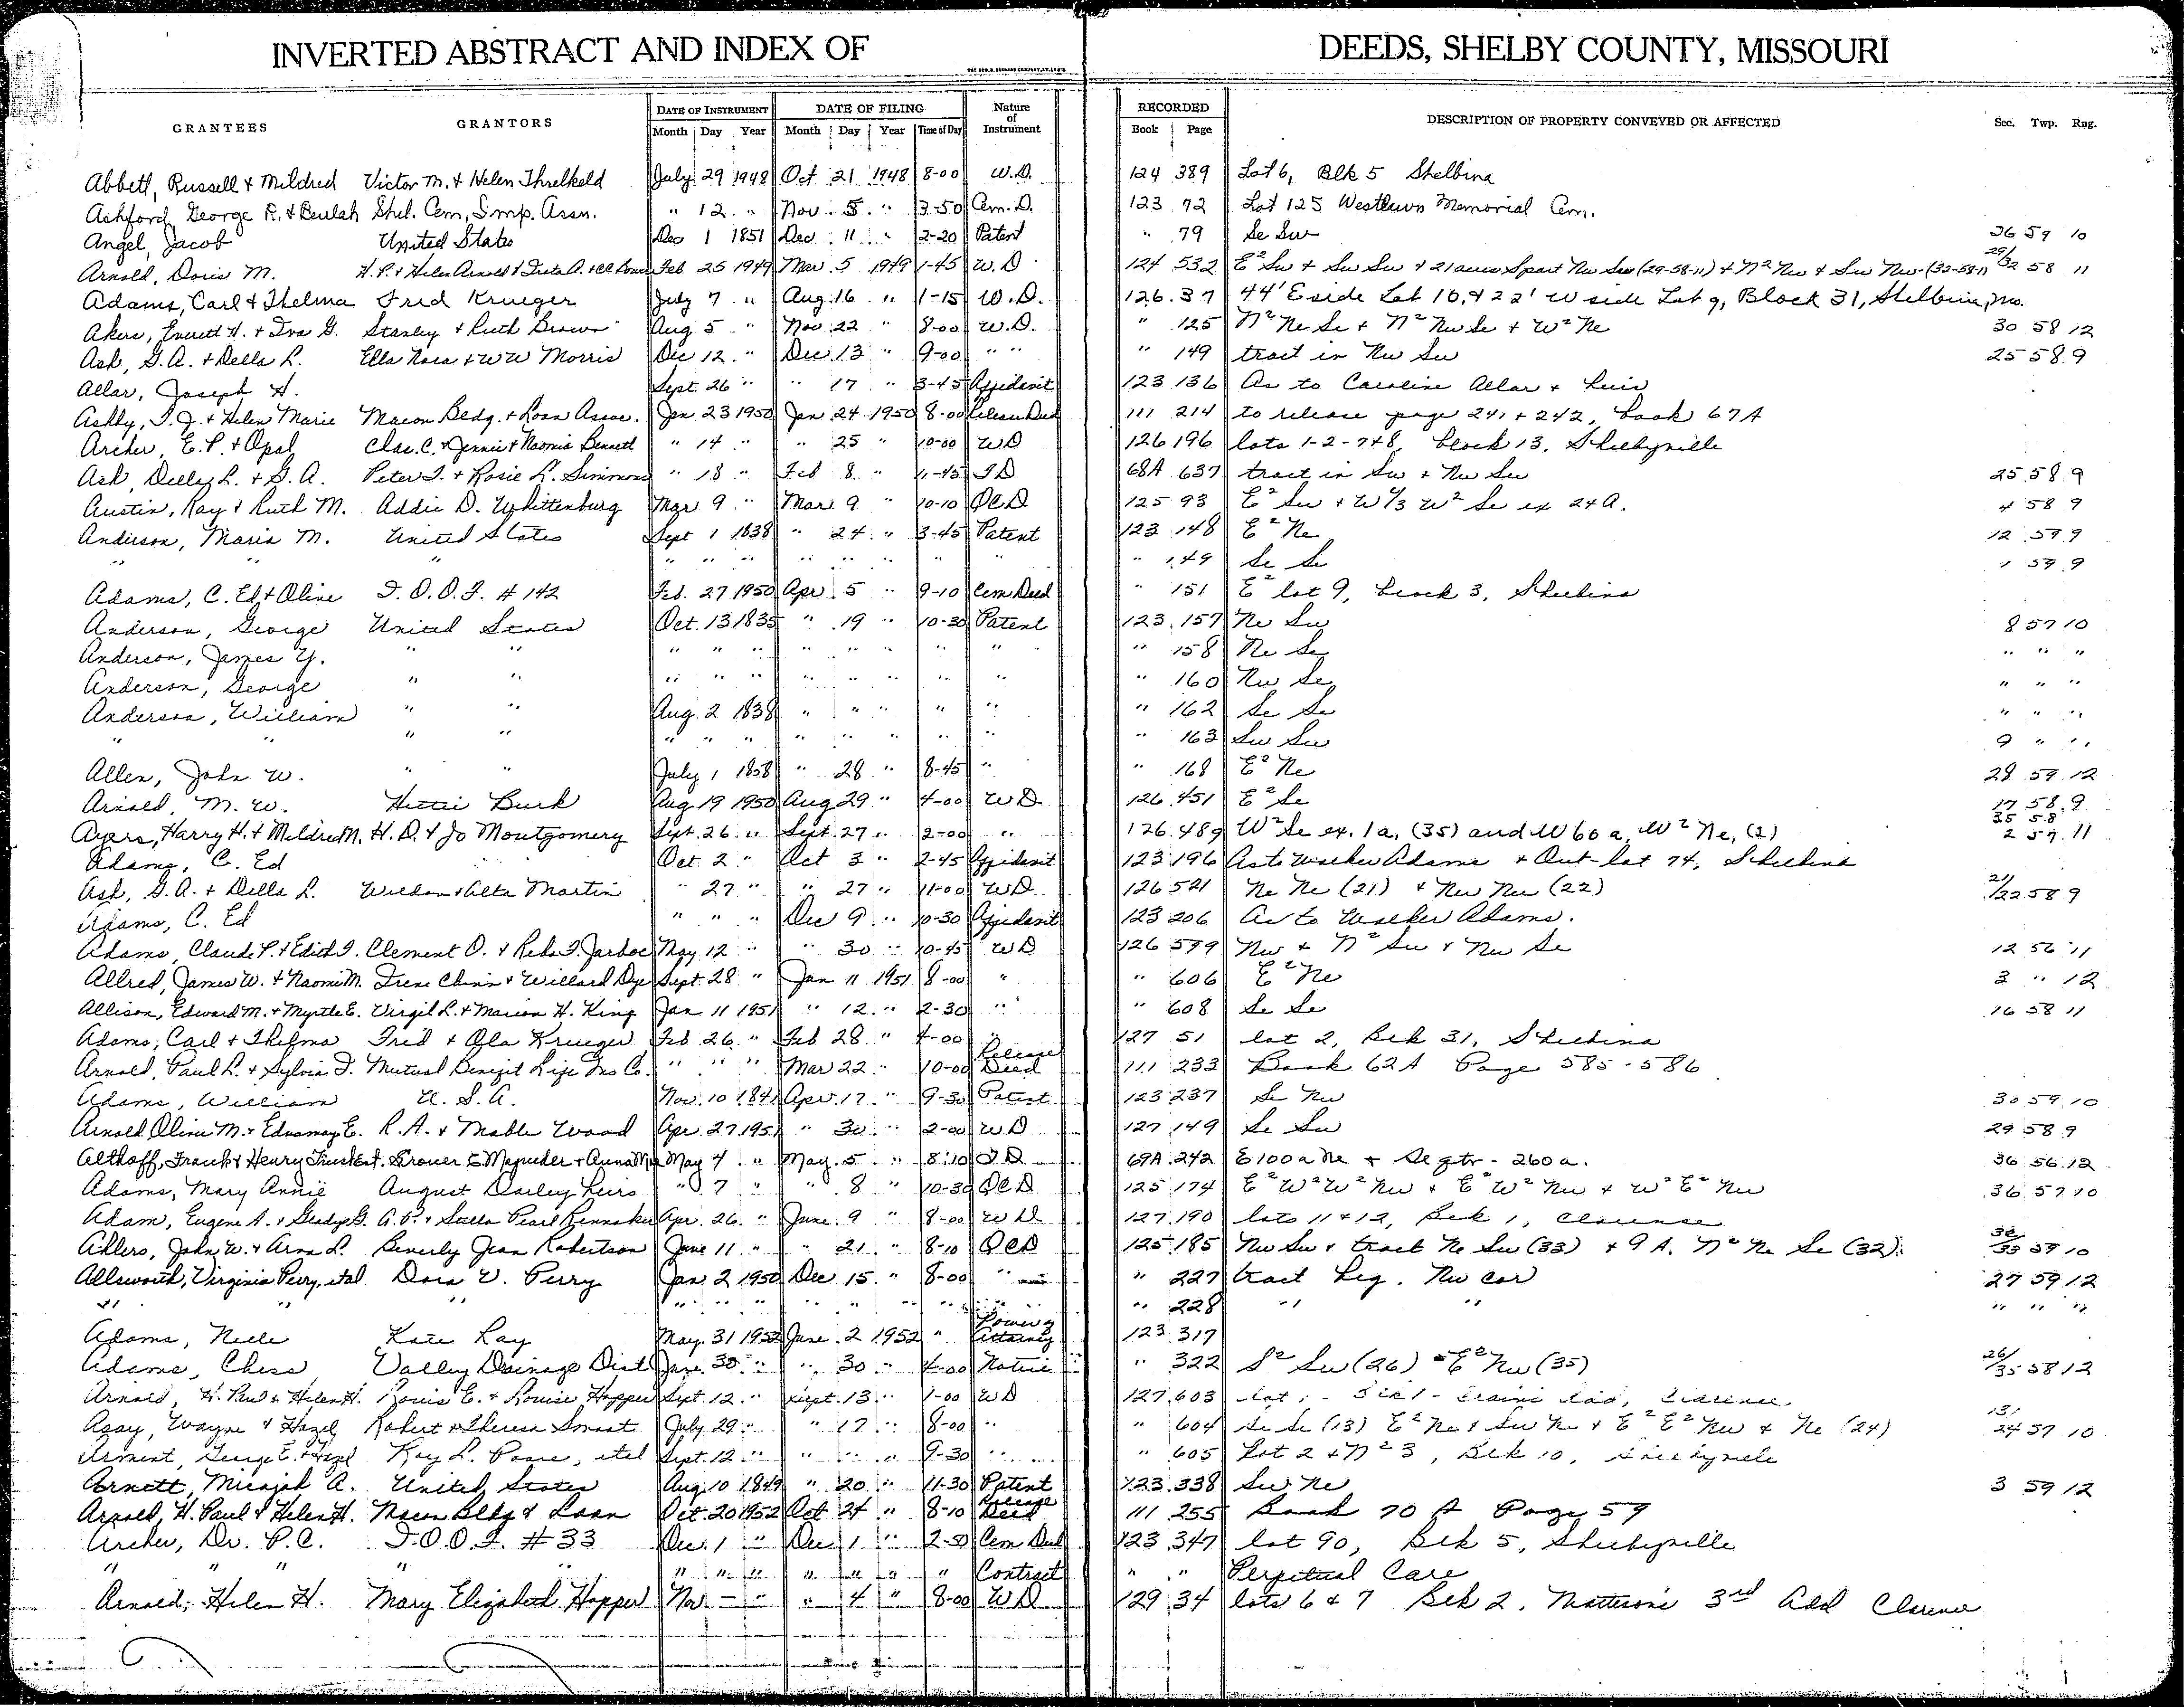 INVERTED ABSTRACT AND INDEX OF DEEDS, SHELBY COUNTY, MISSOURI
GRANTEES GRANTORS DATE OF INSTRUMENT DATE OF FILING Nature of Instrument RECORDED DESCRIPTION OF PROPERTY CONVEYED OR AFFECTED Sec. Twp. Rng.
Month Day Year Month Day Year Time of Day Book Page
Abbett, Russell & Mildred Victor M. & Helen Threlkeld July 29 1948 Oct 21 1948 8-00 W.D. 124 389 Lot 6, Blk 5 Shelbina
Ashford, George R. & Beulah Shel. Cem. Imp. Assn. " 12 " Nov 5 " 3-50 Cem. D. 123 72 Lot 125 Westlawn Memorial Cem.
Angel, Jacob United States Dec 1 1851 Dec 11 " 2-20 Patent " 79 Se Sw 36 59 10
Arnold, Doris M. H.P. & Helen Arnold & Feb 25 1949 Mar 5 1949 1-45 W.D. 124 532 E² Sw & Sw Sw & 21 acres S part Nw Sw (29-58-11) & N² Nw & Sw Nw (32-58-11) 29/32 58 11
Adams, Carl & Thelma Fred Krueger July 7 " Aug. 16 " 1-15 W.D. 126 37 44' E side Lot 10, & 22' W side Lot 9, Block 31, Shelbina, Mo.
Akers, Everett H. & Iva G. Stanley & Ruth Brown Aug 5 " Nov 22 " 8-00 W.D. " 125 N² Ne Se & N² Nw Se & W² Ne 30 58 12
Ash, G.A. & Della L. Ella Nora & W W Morris Dec 12 " Dec 13 " 9-00 " " " 149 tract in Nw Sw 25 58 9
Allar, Joseph H. Sept. 26 " " 17 " 3-45 Affidavit 123 136 As to Caroline Allar &
Ashby, T.J. & Helen Marie Macon Bldg. & Loan Assoc. Jan 23 1950 Jan 24 1950 8-00 Release Deed 111 214 to release page 241 & 242, book 67A
Archer, E.P. & Opal Chas. C. & Jennie & Naomia Bennett " 14 " " 25 " 10-00 WD 126 196 lots 1-2-7&8, block 13, Shelbyville
Ash, Della L. & G.A. Peter T. & Rosie L. Simmons " 18 " Feb 8 " 4-45 TD 68A 637 tract in Sw & Nw Sw 25 58 9
Austin, Ray & Ruth M. Addie D. Whittenburg Mar 9 " Mar 9 " 10-10 QCD 125 93 E² Sw & W⅓ W² Se ex 24 A. 4 58 9
Anderson, Maria M. United States Sept 1 1838 " 24 " 3-45 Patent 123 148 E² Ne 12 59 9
" " " " " " " " " " " 149 Se Se 1 59 9
Adams, C. Ed & Oline I.O.O.F. #142 Feb. 27 1950 Apr. 5 " 9-10 Cem Deed " 151 E² lot 9, block 3, Shelbina
Anderson, George United States Oct. 13 1835 " 19 " 10-30 Patent 123 157 Ne Sw 8 57 10
Anderson, James Y. " " " " " " " " " " " 158 Ne Se " " "
Anderson, George " " " " " " " " " " " 160 Nw Se " " "
Anderson, William " " Aug. 2 1838 " " " " " " 162 Se Se " " "
" " " " " " " " " " " " " 163 Sw Sw 9 " "
Allen, John W. " " July 1 1858 " 28 " 8-45 " " 168 E² Ne 28 59 12
Arnold, M. W. Hettie Burk Aug 19 1950 Aug 29 " 4-00 WD 126 451 E² Se 17 58 9
Ayers, Harry H. & Mildred M. H.D. & Jo Montgomery Sept. 26 " Sept. 27 " 2-00 " 126 489 W² Se ex. 1a, (35) and W 60 a. W² Ne, (2) 35 58 2 57 11
Adams, C. Ed Oct 2 " Oct 3 " 2-45 Affidavit 123 196 As to Walker Adams & Out-lot 74, Shelbina
Ash, G.A. & Della L. Weldon & Alta Martin " 27 " " 27 " 11-00 WD 126 521 Ne Ne (21) & Nw Nw (22) 21/22 58 9
Adams, C. Ed " " " Dec 9 " 10-30 Affidavit 123 206 As to Walker Adams.
Adams, Claude P. & Edith I. Clement O. & Reba J. Jarboe May 12 " " 30 " 10-45 WD 126 579 Nw & N² Sw & Nw Se 12 56 11
Allred, James W. & Naomi M. Irene Chinn & Willard Dye Sept. 28 " Jan 11 1951 8-00 " " 606 E² Ne 3 " 12
Allison, Edward M. & Myrtle E. Virgil L. & Marion H. King Jan 11 1951 " 12 " 2-30 " " 608 Se Se 16 58 11
Adams, Carl & Thelma Fred & Ola Krueger Feb 26 " Feb 28 " 4-00 " 127 51 lot 2, Blk 31, Shelbina
Arnold, Paul L. & Sylvia F. Mutual Benefit Life Ins Co. " " " Mar 22 " 10-00 Release Deed 111 233 Book 62A Page 585-586
Adams, William U.S.A. Nov. 10 1841 Apr. 17 " 9-30 Patent 123 237 Se Nw 30 59 10
Arnold, Oline M. & Ednamay E. R.A. & Mable Wood Apr. 27 1951 " 30 " 2-00 WD 127 149 Se Sw 29 58 9
Althoff, Frank & Henry Trust Est. Grover E Magruder & Anna May 4 " May 5 " 8:10 TD 69A 242 E 100 a Ne & Se qtr - 260 a. 36 56 12
Adams, Mary Annie August Dailey heirs " 7 " " 8 " 10-30 QCD 125 174 E² W² W² Nw & E² W² Nw & W² E² Nw 36 57 10
Adam, Eugene A. & Gladys G. A.P. & Stella Pearl Apr. 26 " June 9 " 8-00 WD 127 190 lots 11 & 12, Blk 1, Clarence
Ahlers, John W. & Anna L. Beverly Jean Robertson June 11 " " 21 " 8-10 QCD 125 185 Nw Sw & tract Ne Sw (33) & 9 A. N² Ne Se (32) 32/33 59 10
Allsworth, Virginia Perry, etal Dora V. Perry Jan 2 1950 Dec 15 " 8-00 " " 227 tract beg. Nw cor 27 59 12
" " " " " " " " " " " " 228 " " " " "
Adams, Nelle Kate Ray May 31 1952 June 2 1952 " Power of Attorney 123 317
Adams, Chess Valley Drainage Dist June 30 " " 30 " 4-00 Notice " 322 S² Sw (26) - E² Nw (35) 26/35 58 12
Arnold, H. Paul & Helen H. Louis E. & Louise Hopper Sept 12 " Sept. 13 " 1-00 WD 127 603 lot Clarence
Asay, Wayne & Hazel Robert & Theresa Smart July 29 " " 17 " 8-00 " " 604 Se Se (13) E² Ne & Sw Ne & E² E² Nw & Ne (24) 13/24 57 10
Arment, George E. & Hazel Ray L. etal Sept. 12 " " " " 9-30 " " 605 Lot 2 & N² 3, Blk 10, Shelbyville
Arnett, Micajah A. United States Aug 10 1849 " 20 " 11-30 Patent 123 338 Sw Ne 3 59 12
Arnold, H. Paul & Helen H. Macon Bldg & Loan Oct. 20 1952 Oct 24 " 8-10 Release Deed 111 255 Book 70 A Page 59
Archer, Dr. P.C. I.O.O.F. #33 Dec. 1 " Dec 1 " 2-50 Cem Deed 123 347 lot 90, Blk 5, Shelbyville
" " " " " " " " " " " Contract " " Perpetual Care
Arnold, Helen H. Mary Elizabeth Hopper Nov — " " 4 " 8-00 WD 129 34 lots 6 & 7 Blk 2, Matteson's 3rd Add Clarence